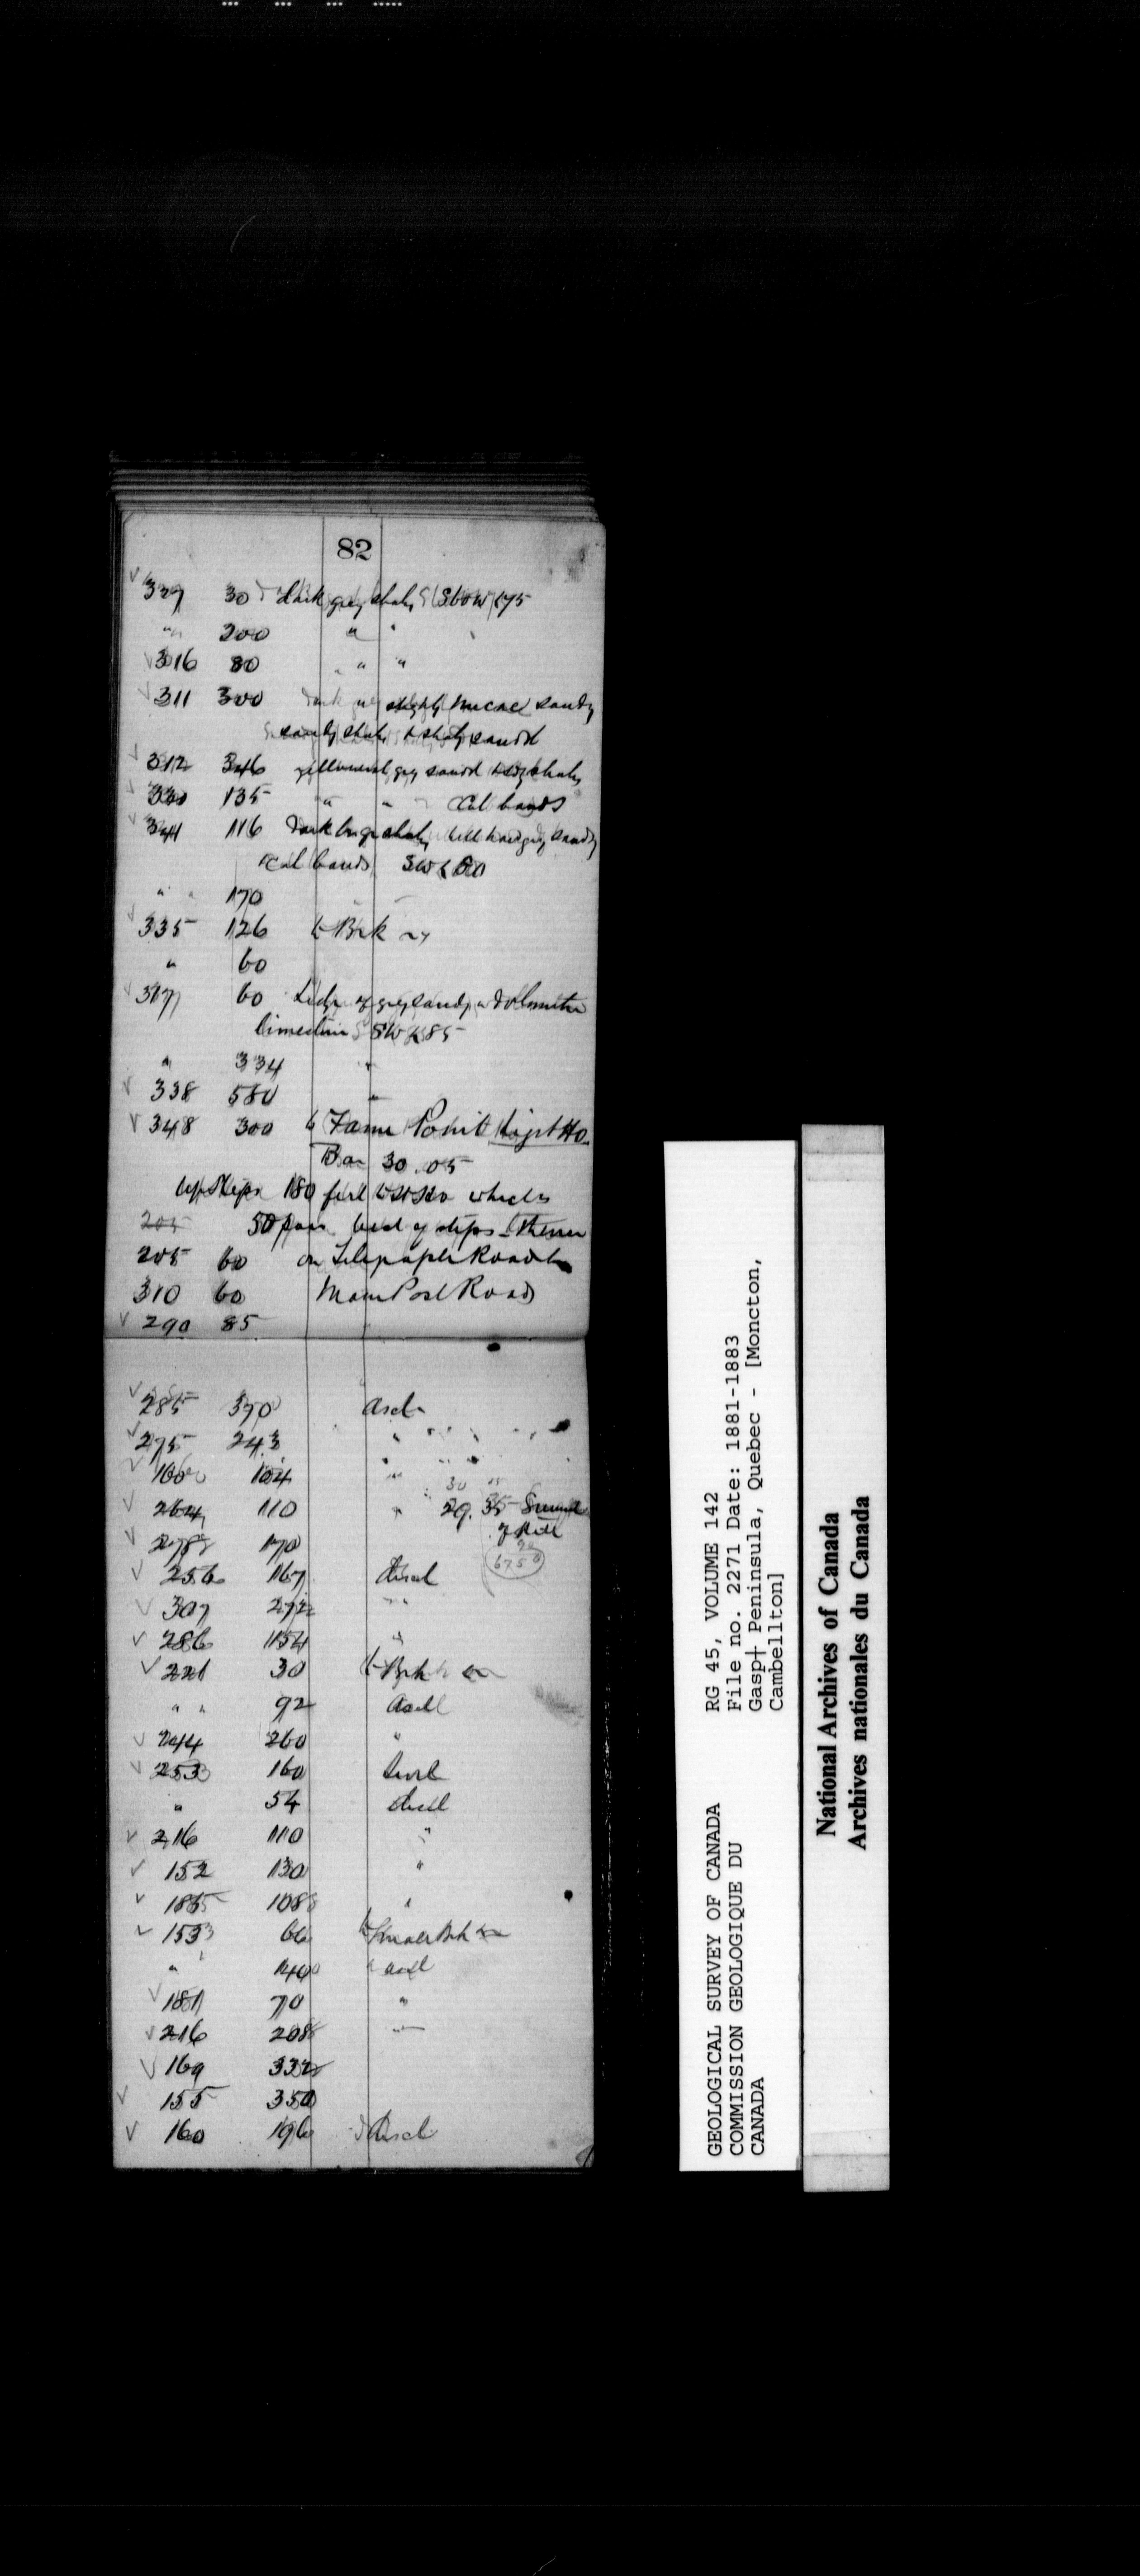 82
337 30 dark grey shaly S 60 W < 75
" 200 " "
316 80 " "
311 300 dark grey slightly micac sandy
sandy shaly & shaly sandst
312 346 grey sandst shaly
330 135 " " Cal bands
341 116 dark shaly sandy
cal bands SW < 80
" " 170
335 126 to Brk
" 60
317 60 Ledge of grey sandy dolomitic
limestone SW < 85
" 334 "
338 580 "
348 300 to Fame Point Light Ho.
Bar 30.05
up steps 180 feet to which is
205 50 paces head of steps - thence
205 60 on Telegraph Road to
310 60 Main Post Road
290 85
285 370 ascd
275 243 "
160 104 "
264 110 " 29.35 Summit
of Hill
278 170
675
256 167 descd
307 272 "
286 154 "
221 30 to Brk
" " 92 ascd
244 260 "
253 160 level
" 54 descd
216 110 "
152 130 "
185 108 "
153 66 to Smaller Brk
" 140 ascd
181 70 "
216 208 "
169 332
155 350
160 196 descd
GEOLOGICAL SURVEY OF CANADA
COMMISSION GEOLOGIQUE DU
CANADA
RG 45, VOLUME 142
File no. 2271 Date: 1881-1883
Gasp† Peninsula, Quebec - [Moncton,
Cambellton]
National Archives of Canada
Archives nationales du Canada